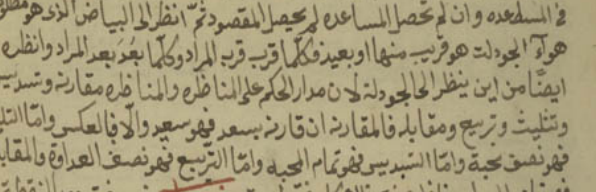 فى المستلعده وان لم تحصل المساعده لم يحصل المقصود ثمّ انظر الى البياض الذى هو مطلو
هوآء الجودلت هو قريب منها او بعيد فكلّما قرب قرب المراد وكلّما بعُد بعد المراد وانظره
ايضًا من اين ينظر الى الجودلة لان مدار الحكم على المناظره والمناظره مقارنه وتسديس
وتثليث وتربيع ومقابله فالمقارنه ان قارنه بسعد فهو سعد والّا فالعكس وامّا التثلـ
فهو نصف محبة وامّا التسديس فهو تمام المحبه وامّا التربيع فهو نصف العداوة والمقابـ